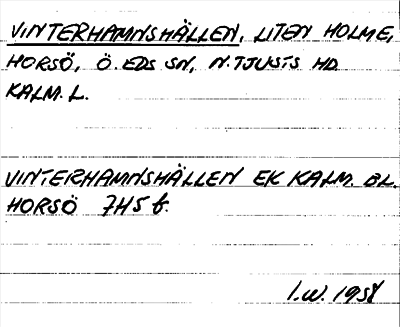 VINTERHAMNSHÄLLEN, LITEN HOLME,
HORSÖ, Ö. EDS SN, N. TJUSTS HD
KALM. L.
VINTERHAMNSHÄLLEN EK KALM. BL.
HORSÖ 7H5f.
I.W. 1958